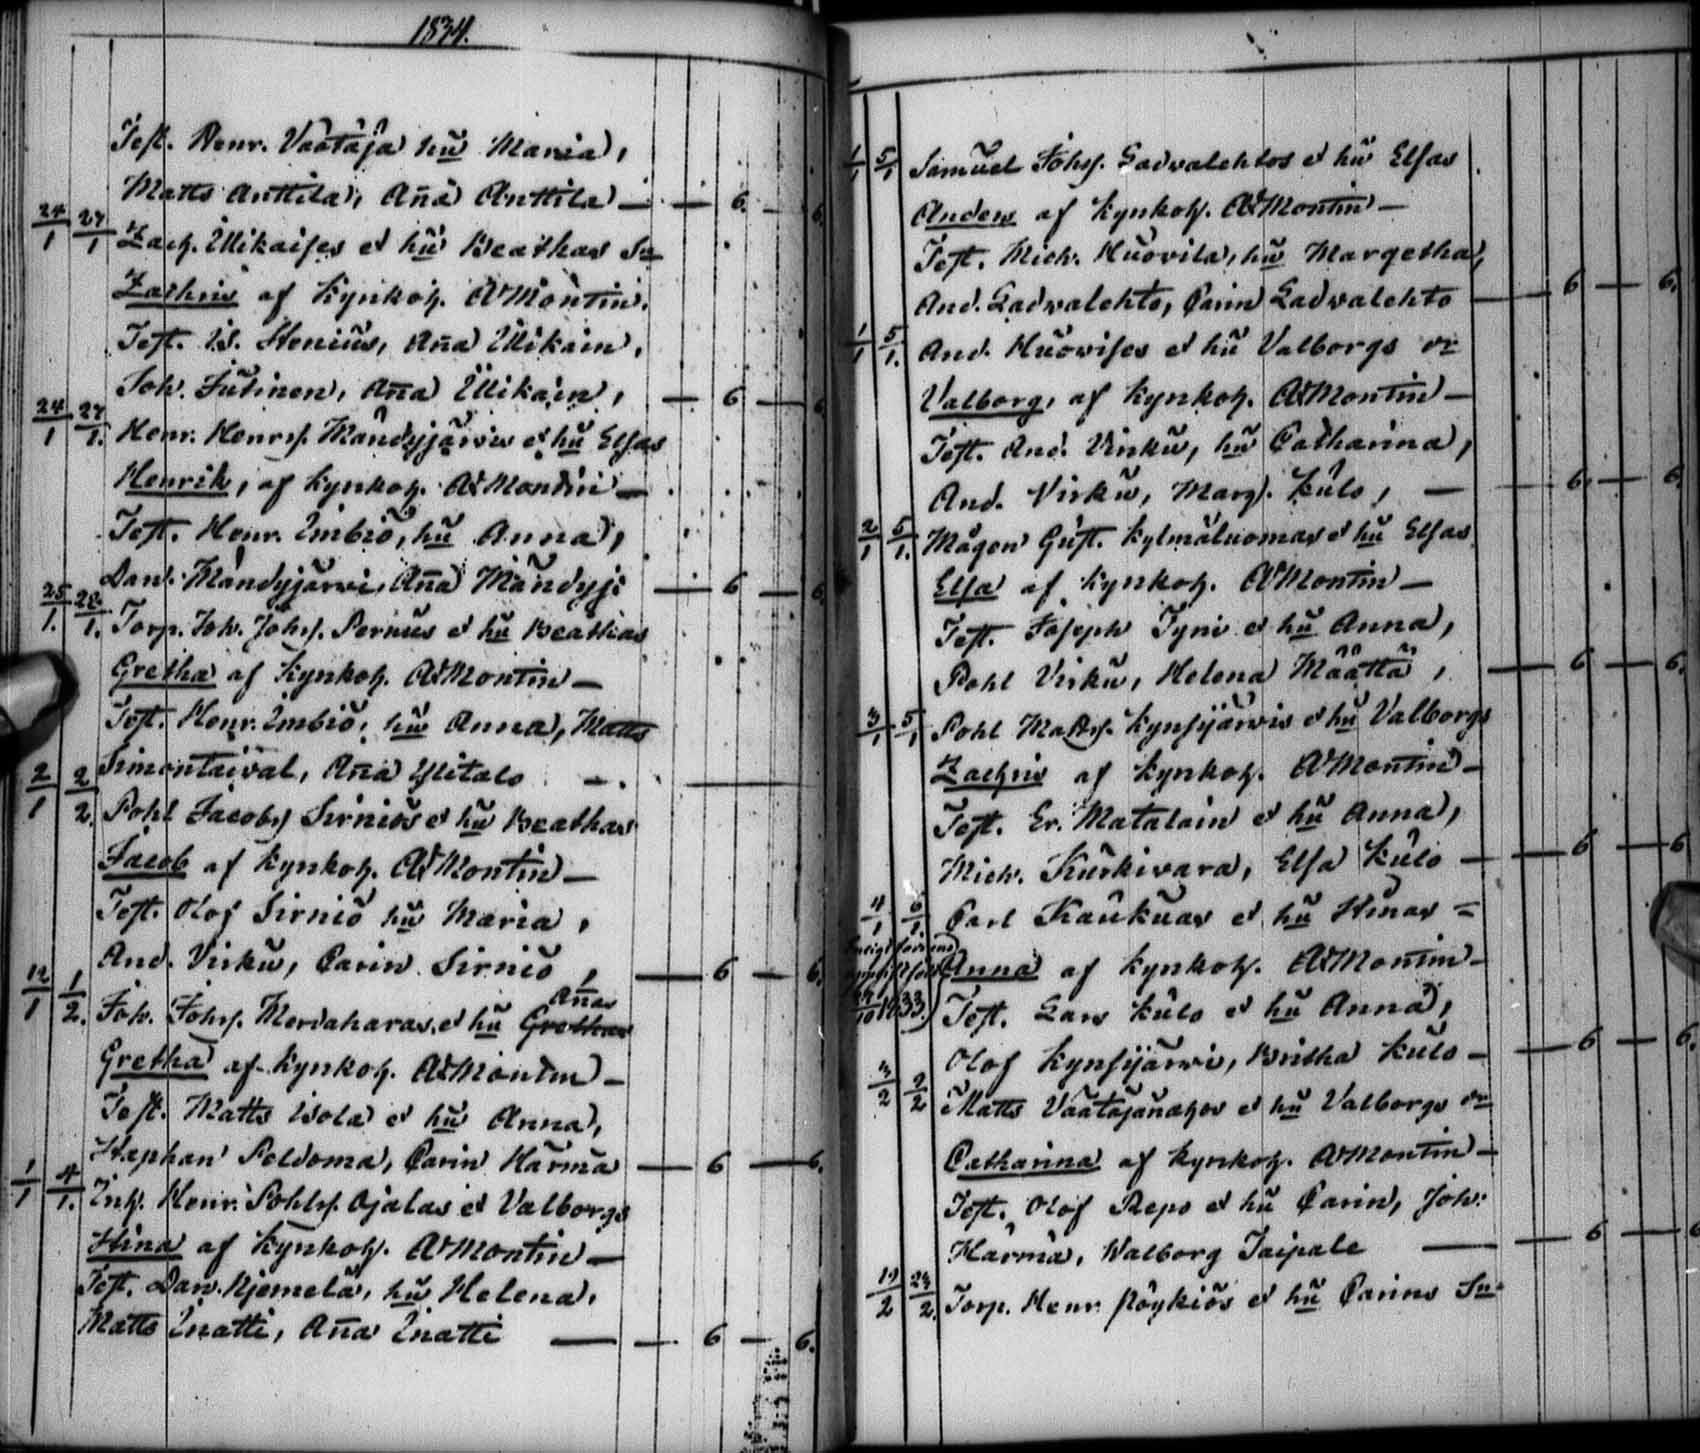 1834.
Test. Henr. Väätäja hu Maria,
Matts Anttila, Ana Anttila — — 6. — 6.
24/1 27/1 Zach. Ulikaises et hu Beathas Sn
Zachris af Kynkoh. AdMontin.
Test. Is. Stenius, Ana Ulikain,
Joh. Jutinen, Ana Ulikain, — 6 — 6
24/1 27/1. Henr. Henrs. Mändyjärvis et hu Elsas
Henrik, af Kynkoh. AdMontin —
Test. Henr. Imbiö, hu Anna,
Dan. Mändyjärvi, Ana Mändyj: — 6 — 6.
25/1. 28/1. Torp. Joh. Johs. Pernus et hu Beathas
Gretha af Kynkoh. AdMontin —
Test. Henr. Imbiö, hu Anna, Matts
Simontaival, Ana Ylitalo —.
2/1 2/2. Pohl Jacobs. Sirniös et hu Beathas
Jacob af Kynkoh. AdMontin —
Test. Olof Sirniö hu Maria,
And. Virku, Carin Sirniö, — 6 — 6.
Anas
12/1 1/2. Joh. Johs. Merdaharas et hu Grethas
Gretha af Kynkoh. AdMontin —
Test. Matts Isola et hu Anna,
Staphan Peldoma, Carin Härmä — 6 — 6.
1/1 4/1. Inh. Henr. Pohls. Ojalas et Valborgs
Stina af Kynkoh. AdMontin —
Test. Dan. Njemelä, hu Helena,
Matts Inatti, Ana Inatti — — 6 — 6.
1/1 5/1 Samuel Johs. Ladvalehtos et hu Elsas
Anders af Kynkoh. AdMontin —
Test. Mich. Huovila, hu Margetha,
And. Ladvalehto, Carin Ladvalehto — 6 — 6.
1/1 5/1. And. Huovises et hu Valborgs dr
Valborg, af Kynkoh. AdMontin —
Test. And. Virku, hu Catharina,
And. Virku, Marg. Kulo, — 6. — 6.
2/1 5/1. Mågen Gust. Kylmäluomas et hu Elsas
Elsa af Kynkoh. AdMontin —
Test. Joseph Tyni et hu Anna,
Pohl Virku, Helena Määttä, — 6 — 6.
3/1 5/1 Pohl Matts. Kynsijärvis et hu Valborgs
Zachris af Kynkoh. AdMontin —
Test. Er. Matalain et hu Anna,
Mich. Kurkivara, Elsa Kulo — 6 — 6
4/1 6/1 Carl Kaukuas et hu Stinas =
Anna af Kynkoh. AdMontin —
1833.) Test. Lars Kulo et hu Anna,
Olof Kynsijärvi, Britha Kulo — 6 — 6.
3/2 9/2 Matts Väätäjänahos et hu Valborgs dr
Catharina af Kynkoh. AdMontin —
Test. Olof Repo et hu Carin, Joh:
Härmä, Walborg Taipale — 6 — 6
19/2 24/2. Torp. Henr. Röykiös et hu Carins Sn=